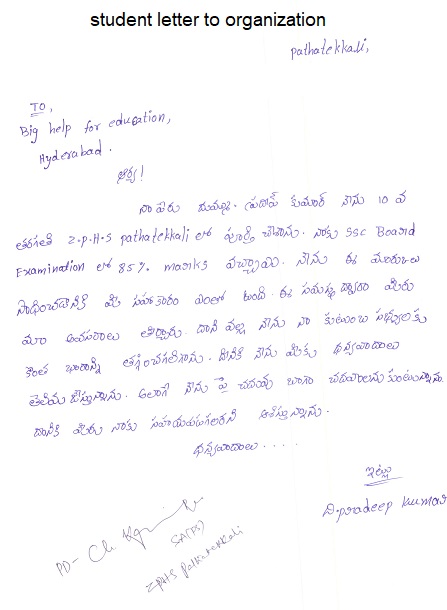 student letter to organization
pathatekkali,
TO,
Big help for education,
Hyderabad.
ఆర్యా!
నా పేరు దుమ్ము. ప్రదీప్ కుమార్ నేను 10 వ
తరగతి Z.P.H.S pathatekkali లో పూర్తి చేశాను. నాకు SSC Board
Examination లో 85% marks వచ్చాయి. నేను ఈ మార్కులు
సాధించడానికి మీ సహకారం ఎంతో ఉంది. ఈ సమస్త ద్వారా మీరు
మా అవసరాలు తీర్చారు. దాని వల్ల నేను నా కుటుంబ సభ్యులకు
కొంత భారాన్ని తగ్గించగలిగాను. దీనికి నేను మీకు ధన్యవాదాలు
తెలియ చేస్తున్నాను. అలాగే నేను పై చదువు బాగా చదవాలనుకుంటున్నాను.
దానికి మీరు నాకు సహాయపడగలరని ఆశిస్తున్నాను.
ధన్యవాదాలు....
ఇట్లు
D.pradeep kumar
PD-
SA(PS)
ZPHS Pathatekkali